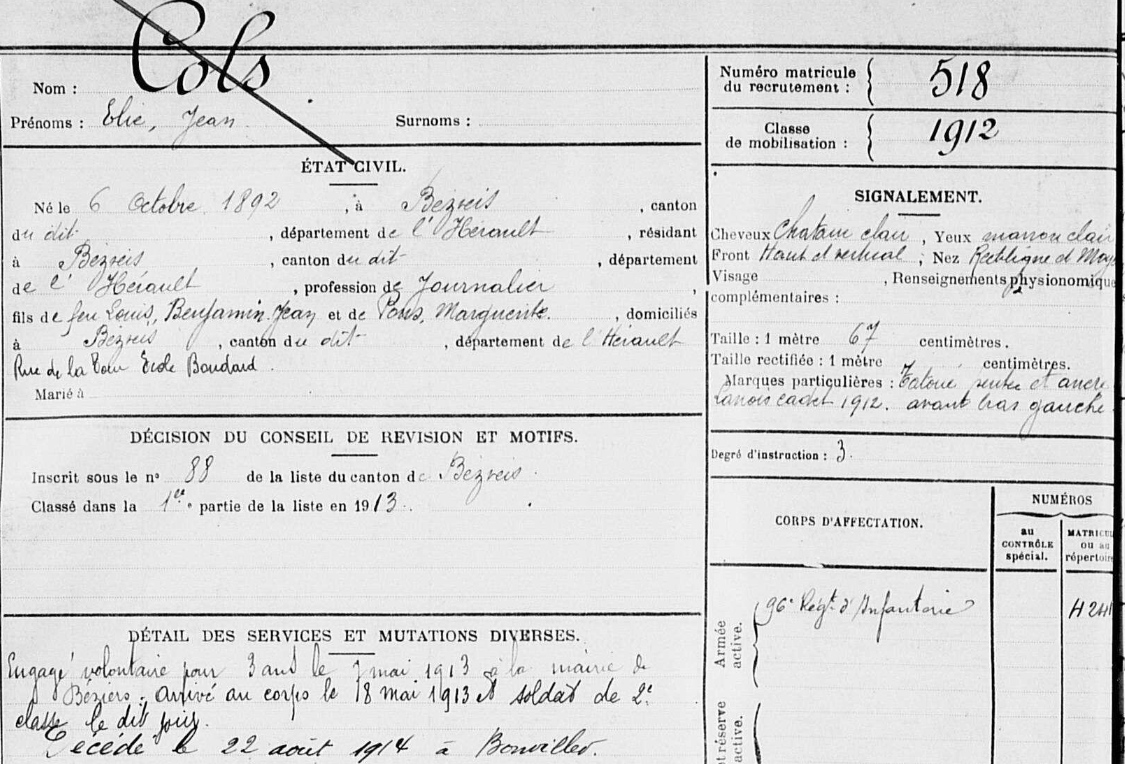 Nom : Cols
Prénoms : Elie, Jean Surnoms :
ÉTAT CIVIL.
Né le 6 Octobre 1892, à Béziers, canton
du dit, département de l'Hérault, résidant
à Béziers, canton du dit, département
de l'Hérault, profession de Journalier,
fils de feu Louis, Benjamin Jean et de Pons, Marguerite, domiciliés
à Béziers, canton du dit, département de l'Hérault
Rue de la Tour
Marié à
DÉCISION DU CONSEIL DE REVISION ET MOTIFS.
Inscrit sous le n° 88 de la liste du canton de Béziers.
Classé dans la 1ere partie de la liste en 1913.
DÉTAIL DES SERVICES ET MUTATIONS DIVERSES.
Engagé volontaire pour 3 ans le 7 mai 1913 à la mairie de
Béziers; arrivé au corps le 18 mai 1913 et soldat de 2e
classe le dit jour.
Décédé le 22 août 1914 à Bonviller.
Numéro matricule
du recrutement : 518
Classe
de mobilisation : 1912
SIGNALEMENT.
Cheveux Chatain clair, Yeux marron clair
Front Haut et vertical; Nez Rectiligne et Moy
Visage , Renseignements physionomique
complémentaires :
Taille : 1 mètre 67 centimètres.
Taille rectifiée : 1 mètre centimètres.
Marques particulières : Tatoué et ancre
cadet 1912. avant bras gauche
Degré d'instruction : 3.
CORPS D'AFFECTATION.
NUMÉROS
au
CONTRÔLE
spécial.
MATRICU
ou au
répertoire
Armée
active.
96e Régt d'Infanterie
et réserve
active.